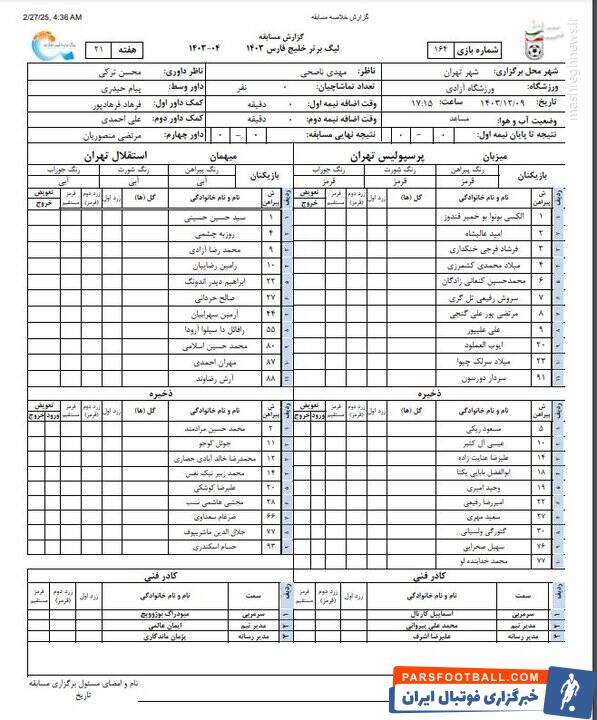 2/27/25, 4:36 AM
گزارش خلاصه مسابقه
گزارش مسابقه
لیگ برتر خلیج فارس ۱۴۰۳ ۰۴-۱۴۰۳
شماره بازی ۱۶۴
هفته ۲۱
mashreghnews.ir
شهر محل برگزاری: شهر تهران
ناظر: مهدی ناصحی
ناظر داوری: محسن ترکی
ورزشگاه: ورزشگاه آزادی
تعداد تماشاچیان: ۰ نفر
داور وسط: پیام حیدری
تاریخ: ۱۴۰۳/۱۲/۰۹ ساعت: ۱۷:۱۵
وقت اضافه نیمه اول: ۰ دقیقه
کمک داور اول: فرهاد فرهادپور
وضعیت آب و هوا: مساعد
وقت اضافه نیمه دوم: ۰ دقیقه
کمک داور دوم: علی احمدی
نتیجه تا پایان نیمه اول: ۰ - ۰
نتیجه نهایی مسابقه: ۰ - ۰
داور چهارم: مرتضی منصوریان
میزبان پرسپولیس تهران
بازیکنان رنگ پیراهن رنگ شورت رنگ جوراب
قرمز قرمز قرمز
ردیف ش پیراهن نام و نام خانوادگی گل (ها) زرد اول زرد دوم (قرمز) قرمز مستقیم تعویض خروج
۱ الکسی بونوا بو خمیر قندوز
۲ امید عالیشاه
۳ فرشاد فرجی خنگداری
۴ میلاد محمدی کشمرزی
۶ محمدحسین کنعانی زادگان
۷ سروش رفیعی تل گری
۸ مرتضی پور علی گنجی
۹ علی علیپور
۲۰ ایوب العملود
۲۳ میلاد سرلک چیوا
۹۱ سردار دورسون
ذخیره
ردیف ش پیراهن نام و نام خانوادگی گل (ها) زرد اول زرد دوم (قرمز) قرمز مستقیم تعویض ورود خروج
۵ مسعود ریگی
۱۰ عیسی آل کثیر
۱۴ علیرضا عنایت زاده
۱۸ ابوالفضل بابایی یکتا
۱۹ وحید امیری
۲۲ امیررضا رفیعی
۲۷ سعید مهری
۳۰ گئورگی ولسیانی
۷۶ سهیل صحرایی
۷۷ محمد خدابنده لو
کادر فنی
ردیف سمت نام و نام خانوادگی زرد اول زرد دوم (قرمز) قرمز مستقیم
۱ سرمربی اسماییل کارتال
۲ مدیر تیم محمد علی پیروانی
۳ مدیر رسانه علیرضا اشرف
میهمان استقلال تهران
بازیکنان رنگ پیراهن رنگ شورت رنگ جوراب
آبی آبی آبی
ردیف ش پیراهن نام و نام خانوادگی گل (ها) زرد اول زرد دوم (قرمز) قرمز مستقیم تعویض خروج
۱ سید حسین حسینی
۴ روزبه چشمی
۹ محمد رضا آزادی
۱۰ رامین رضاییان
۲۲ ابراهیم دیدر اندونگ
۲۷ صالح حردانی
۴۴ آرمین سهرابیان
۵۵ رافائل دا سیلوا آرودا
۸۰ محمد حسین اسلامی
۸۷ مهران احمدی
۸۸ آرش رضاوند
ذخیره
ردیف ش پیراهن نام و نام خانوادگی گل (ها) زرد اول زرد دوم (قرمز) قرمز مستقیم تعویض ورود خروج
۲ محمد حسین مرادمند
۱۱ جوئل کوجو
۱۲ محمدرضا خالد آبادی حصاری
۱۴ محمد زبیر نیک نفس
۲۰ علیرضا کوشکی
۲۸ مجتبی هاشمی نسب
۶۶ ضرغام سعداوی
۷۷ جلال الدین ماشاریپوف
۹۳ حسام اسکندری
کادر فنی
ردیف سمت نام و نام خانوادگی زرد اول زرد دوم (قرمز) قرمز مستقیم
۱ سرمربی میودراگ بوژوویچ
۲ مدیر تیم ایمان عالمی
۳ مدیر رسانه پژمان ماندگاری
نام و امضای مسئول برگزاری مسابقه
تاریخ
PARSFOOTBALL.COM
خبرگزاری فوتبال ایران